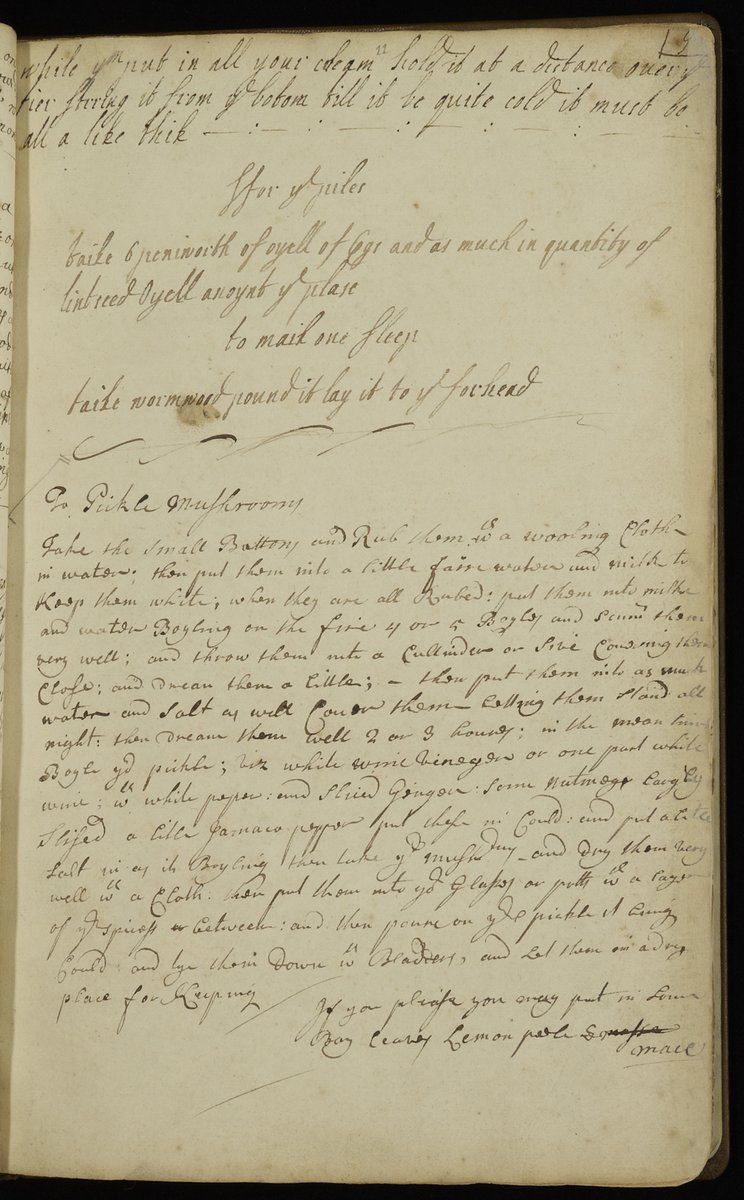 while yn put in all your cream hold it at a distance over ye
fier stiring it from ye botom till it be quite cold it must be
all a like thik
ffor ye piles
taike 6 peniworth of oyell of Egs and as much in quantity of
lintseed Oyell anoynt ye plase
to maik one sleep
taike wormwood pound it lay it to ye forhead
To Pickle Mushrooms
Take the small Buttons and Rub them wth a wooling Cloth
in water; then put them into a little faire water and milk to
Keep them white; when they are all Rubed: put them into milke
and water Boyling on the fire 4 or 5 Boyles and scum them
very well; and throw them into a Cullinder or sive Covering them
Close; and drean them a little; - then put them into as much
water and salt as will Cover them - Letting them stand all
night: then dreane them well 2 or 3 houres; in the mean time
Boyle yd pickle; viz white wine vineger or one part white
wine; wth white peper: and slised Ginger: some nutmegs Largly
slised a litle Jamaco pepper put these in Could: and put a litle
salt in as its Boyling then take ye Mushrms - and dry them very
well wth a Cloth: then put them into yd Glasses or potts wth a layer
of ye spices between: and then poure on yd pickle it being
Could and tye them down wth Bladders, and set them in a dry
place for Keeping
If you please you may put in some
Bay leaves Lemon peele &
mace